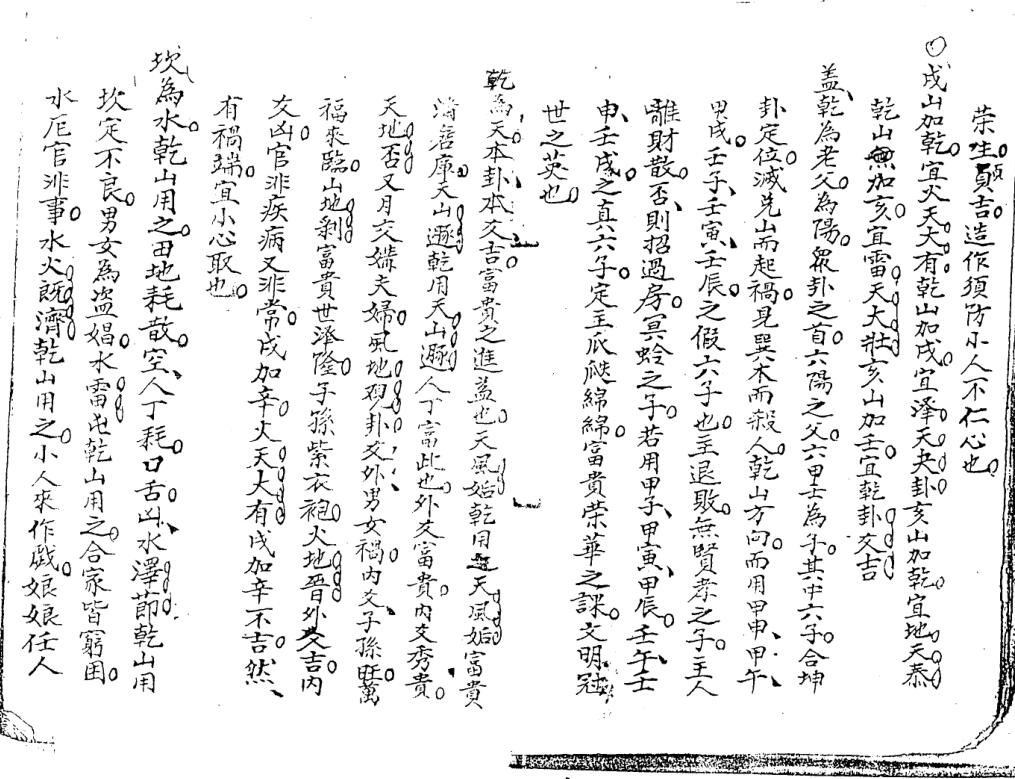 荣生貭吉造作須防小人不仁心也
戌山加乾宜火天大有乾山加戌宜泽天夬卦亥山加乾宜地天泰
乾山無加亥宜雷天大壮亥山加壬宜乾卦爻吉
盖乾為老父為陽眾卦之首六陽之父六甲壬為子其中六子合坤
卦定位滅兑山而起禍見巽木而殺人乾山方向而用甲申甲午
甲戌壬子壬寅壬辰之假六子也主退敗無賢孝之子主人
離財散否則招過房冥蛉之子若用甲子甲寅甲辰壬午壬
申壬戌之真六子定主瓜瓞綿綿富貴荣華之課文明冠
世之英也
乾為天本卦本爻吉富貴之進益也天風姤乾用天風姤富貴
滿倉庫天山遯乾用天山遯人丁富此也外爻富貴内爻秀貴
天地否又月爻嬬夫婦風地观卦爻外男女禍内爻子孫旺萬
福來臨山地剥富貴世泽隆子孫紫衣袍火地晋外爻吉内
爻凶官非疾病又非常戌加辛火天大有戌加辛不吉然
有禍端宜小心取也
坎為水乾山用之田地耗散空人丁耗口舌凶水澤節乾山用
坎定不良男女為盗娼水雷屯乾山用之合家皆窮困
水厄官非事水火既濟乾山用之小人來作戲娘娘任人